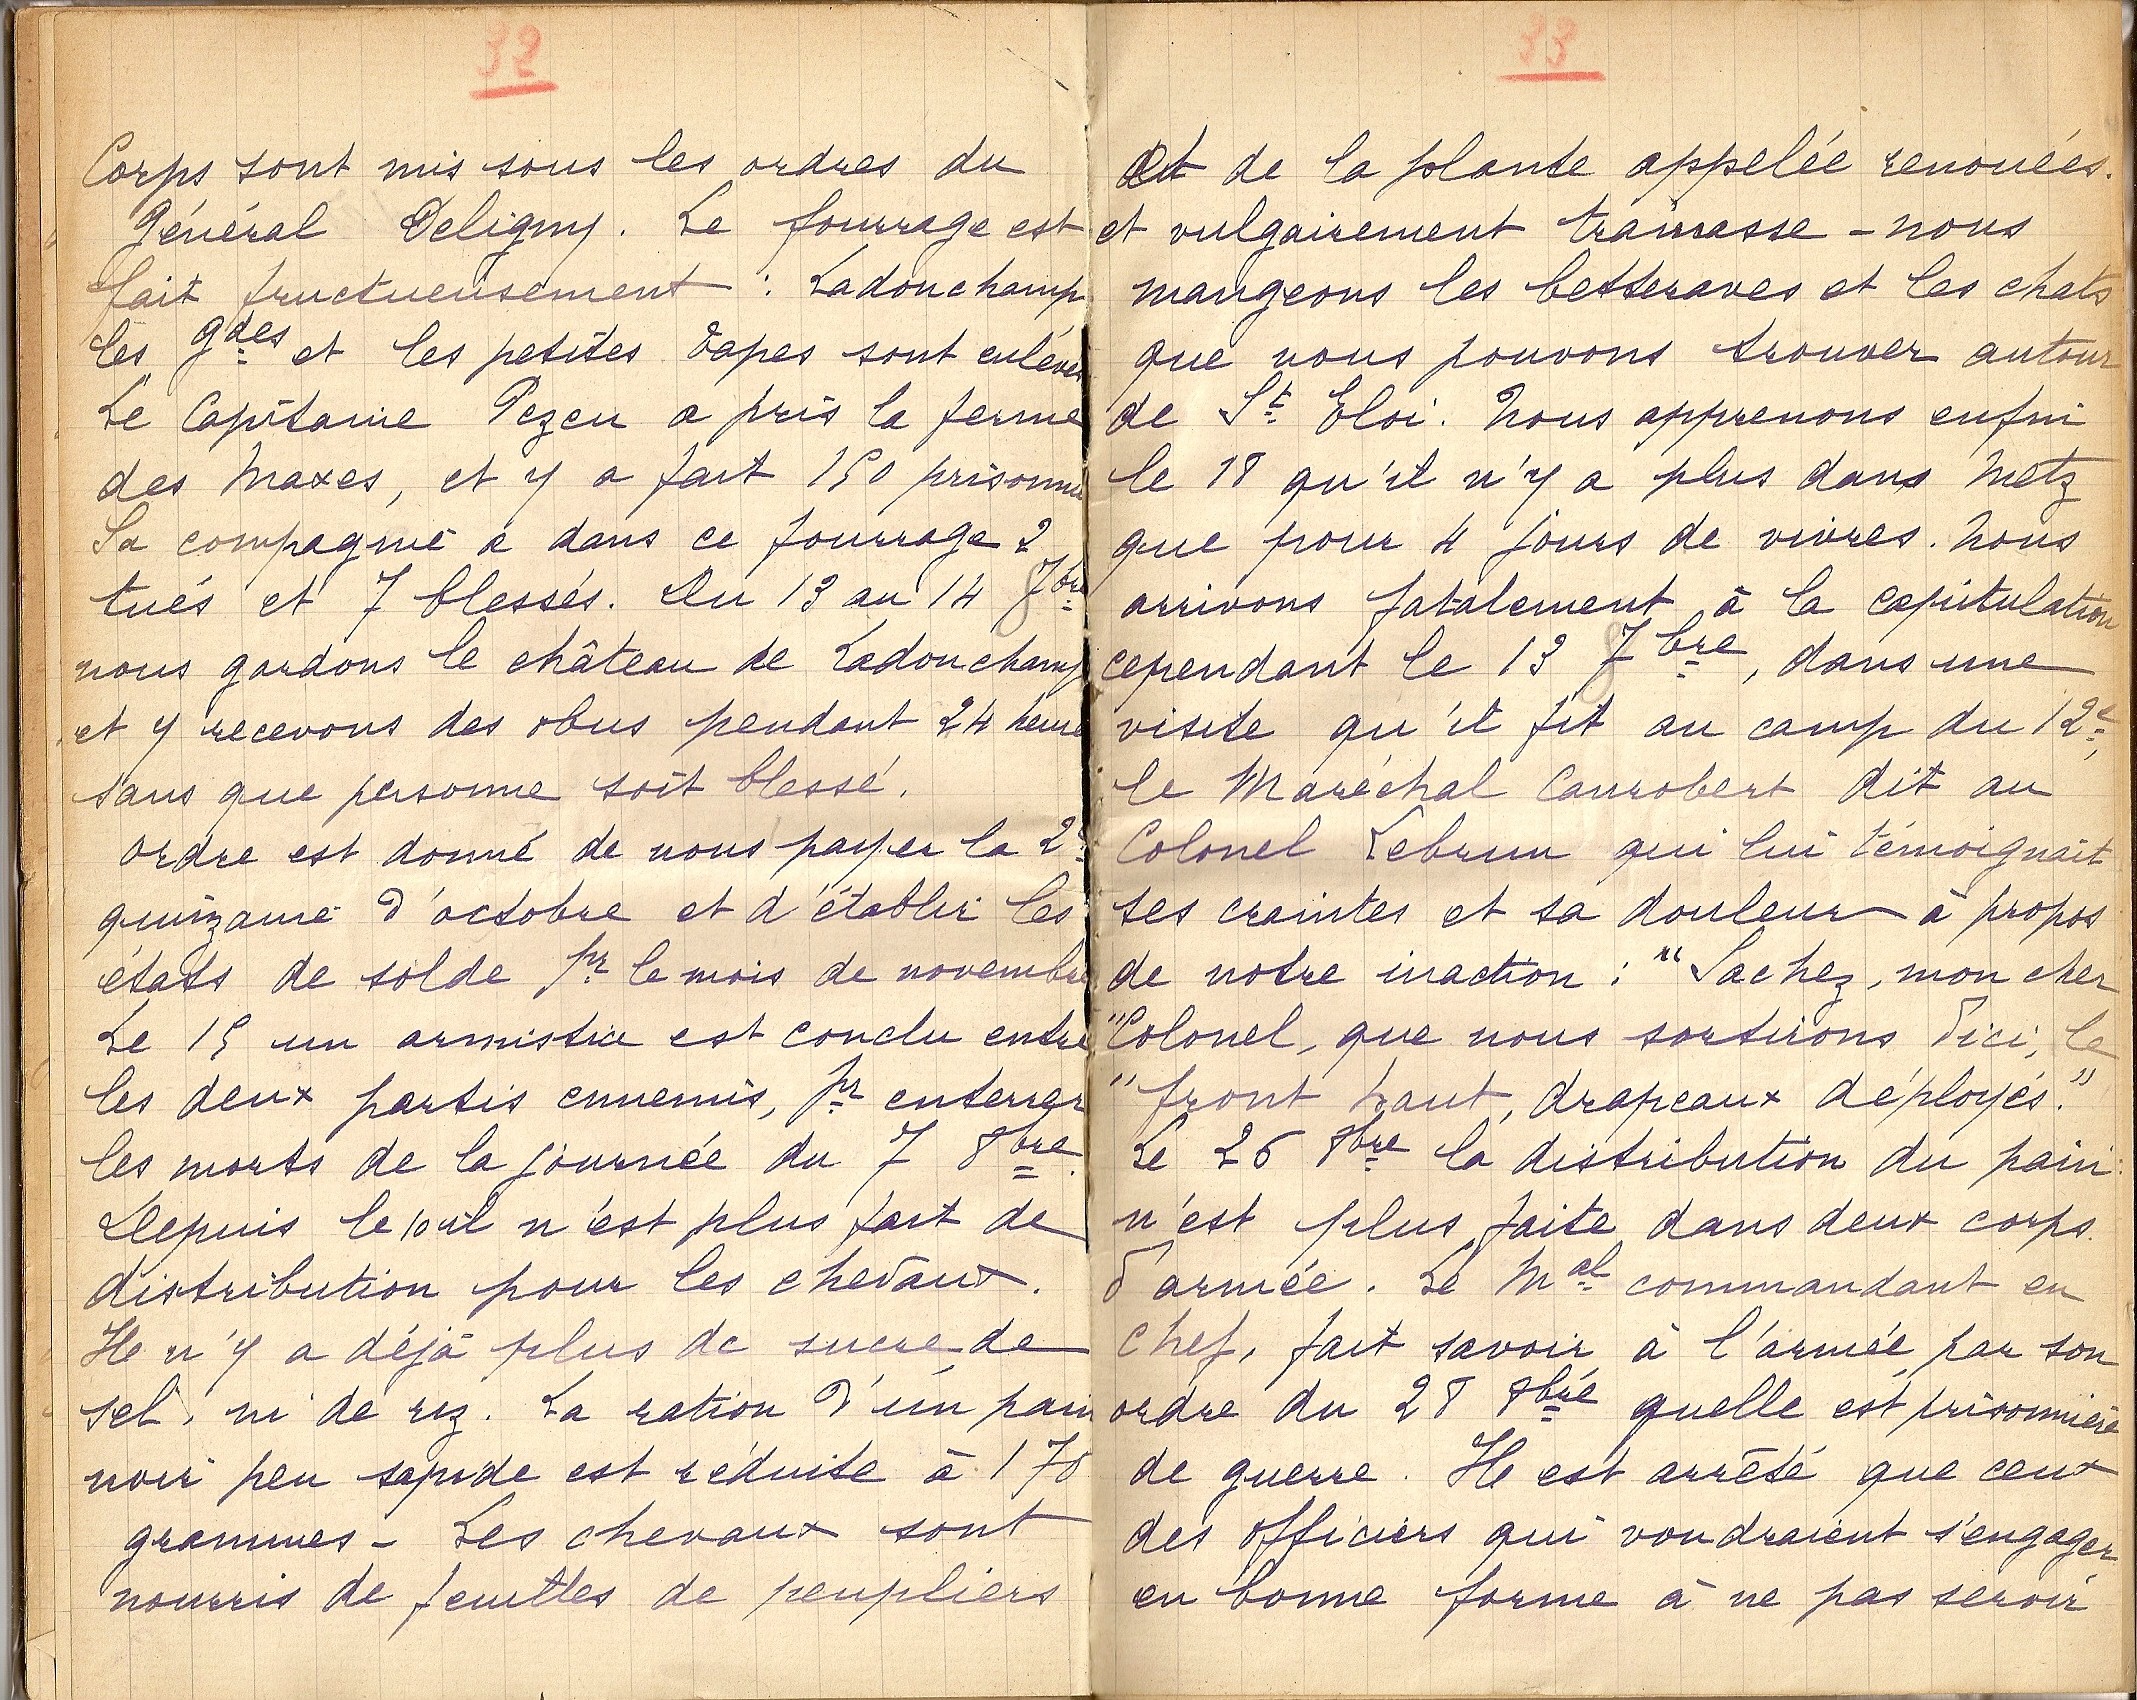 32
Corps sont mis sous les ordres du
Général Deligny. Le fourrage est
fait fructueusement : Ladonchamp
les gdes et les petites Tapes sont enlevés
Le Capitaine Pezeu a pris la ferme
des Maxes, et y a fait 150 prisonnie
Sa compagnie a dans ce fourrage 2
tués et 7 blessés. Du 13 au 14 7bre
nous gardons le château de Ladonchamp
et y recevons des obus pendant 24 heure
sans que personne soit blessé.
Ordre est donné de nous payer la 2e
quinzaine d'octobre et d'établir les
états de solde pr le mois de novembre
Le 15 un armistice est conclu entre
les deux partis ennemis, pr enterrer
les morts de la journée du 7 8bre.
Depuis le 10 il n'est plus fait de
distribution pour les chevaux.
Il n'y a déjà plus de sucre, de
sel, ni de riz. La ration d'un pain
noir peu sapide est réduite à 170
grammes - Les chevaux sont
nourris de feuilles de peupliers
33
et de la plante appelée renouées.
et vulgairement trainasse - nous
mangeons les betteraves et les chats
que nous pouvons trouver autour
de St Eloi. Nous apprenons enfin
le 18 qu'il n'y a plus dans Metz
que pour 4 jours de vivres. Nous
arrivons fatalement à la capitulation
cependant le 13 7bre, dans une
visite qu'il fit au camp du 12e,
le Maréchal Canrobert dit au
Colonel Lebrun qui lui témoignait
ses craintes et sa douleur à propos
de notre inaction : "Sachez, mon cher
"Colonel, que nous sortirons d'ici, le
"front haut, drapeaux déployés."
Le 26 8bre la distribution du pain
n'est plus faite dans deux corps
d'armée. Le Mal commandant en
chef, fait savoir à l'armée par son
ordre du 28 8bre quelle est prisonnière
de guerre. Il est arrêté que ceux
des officiers qui voudraient s'engager
en bonne forme à ne pas servir